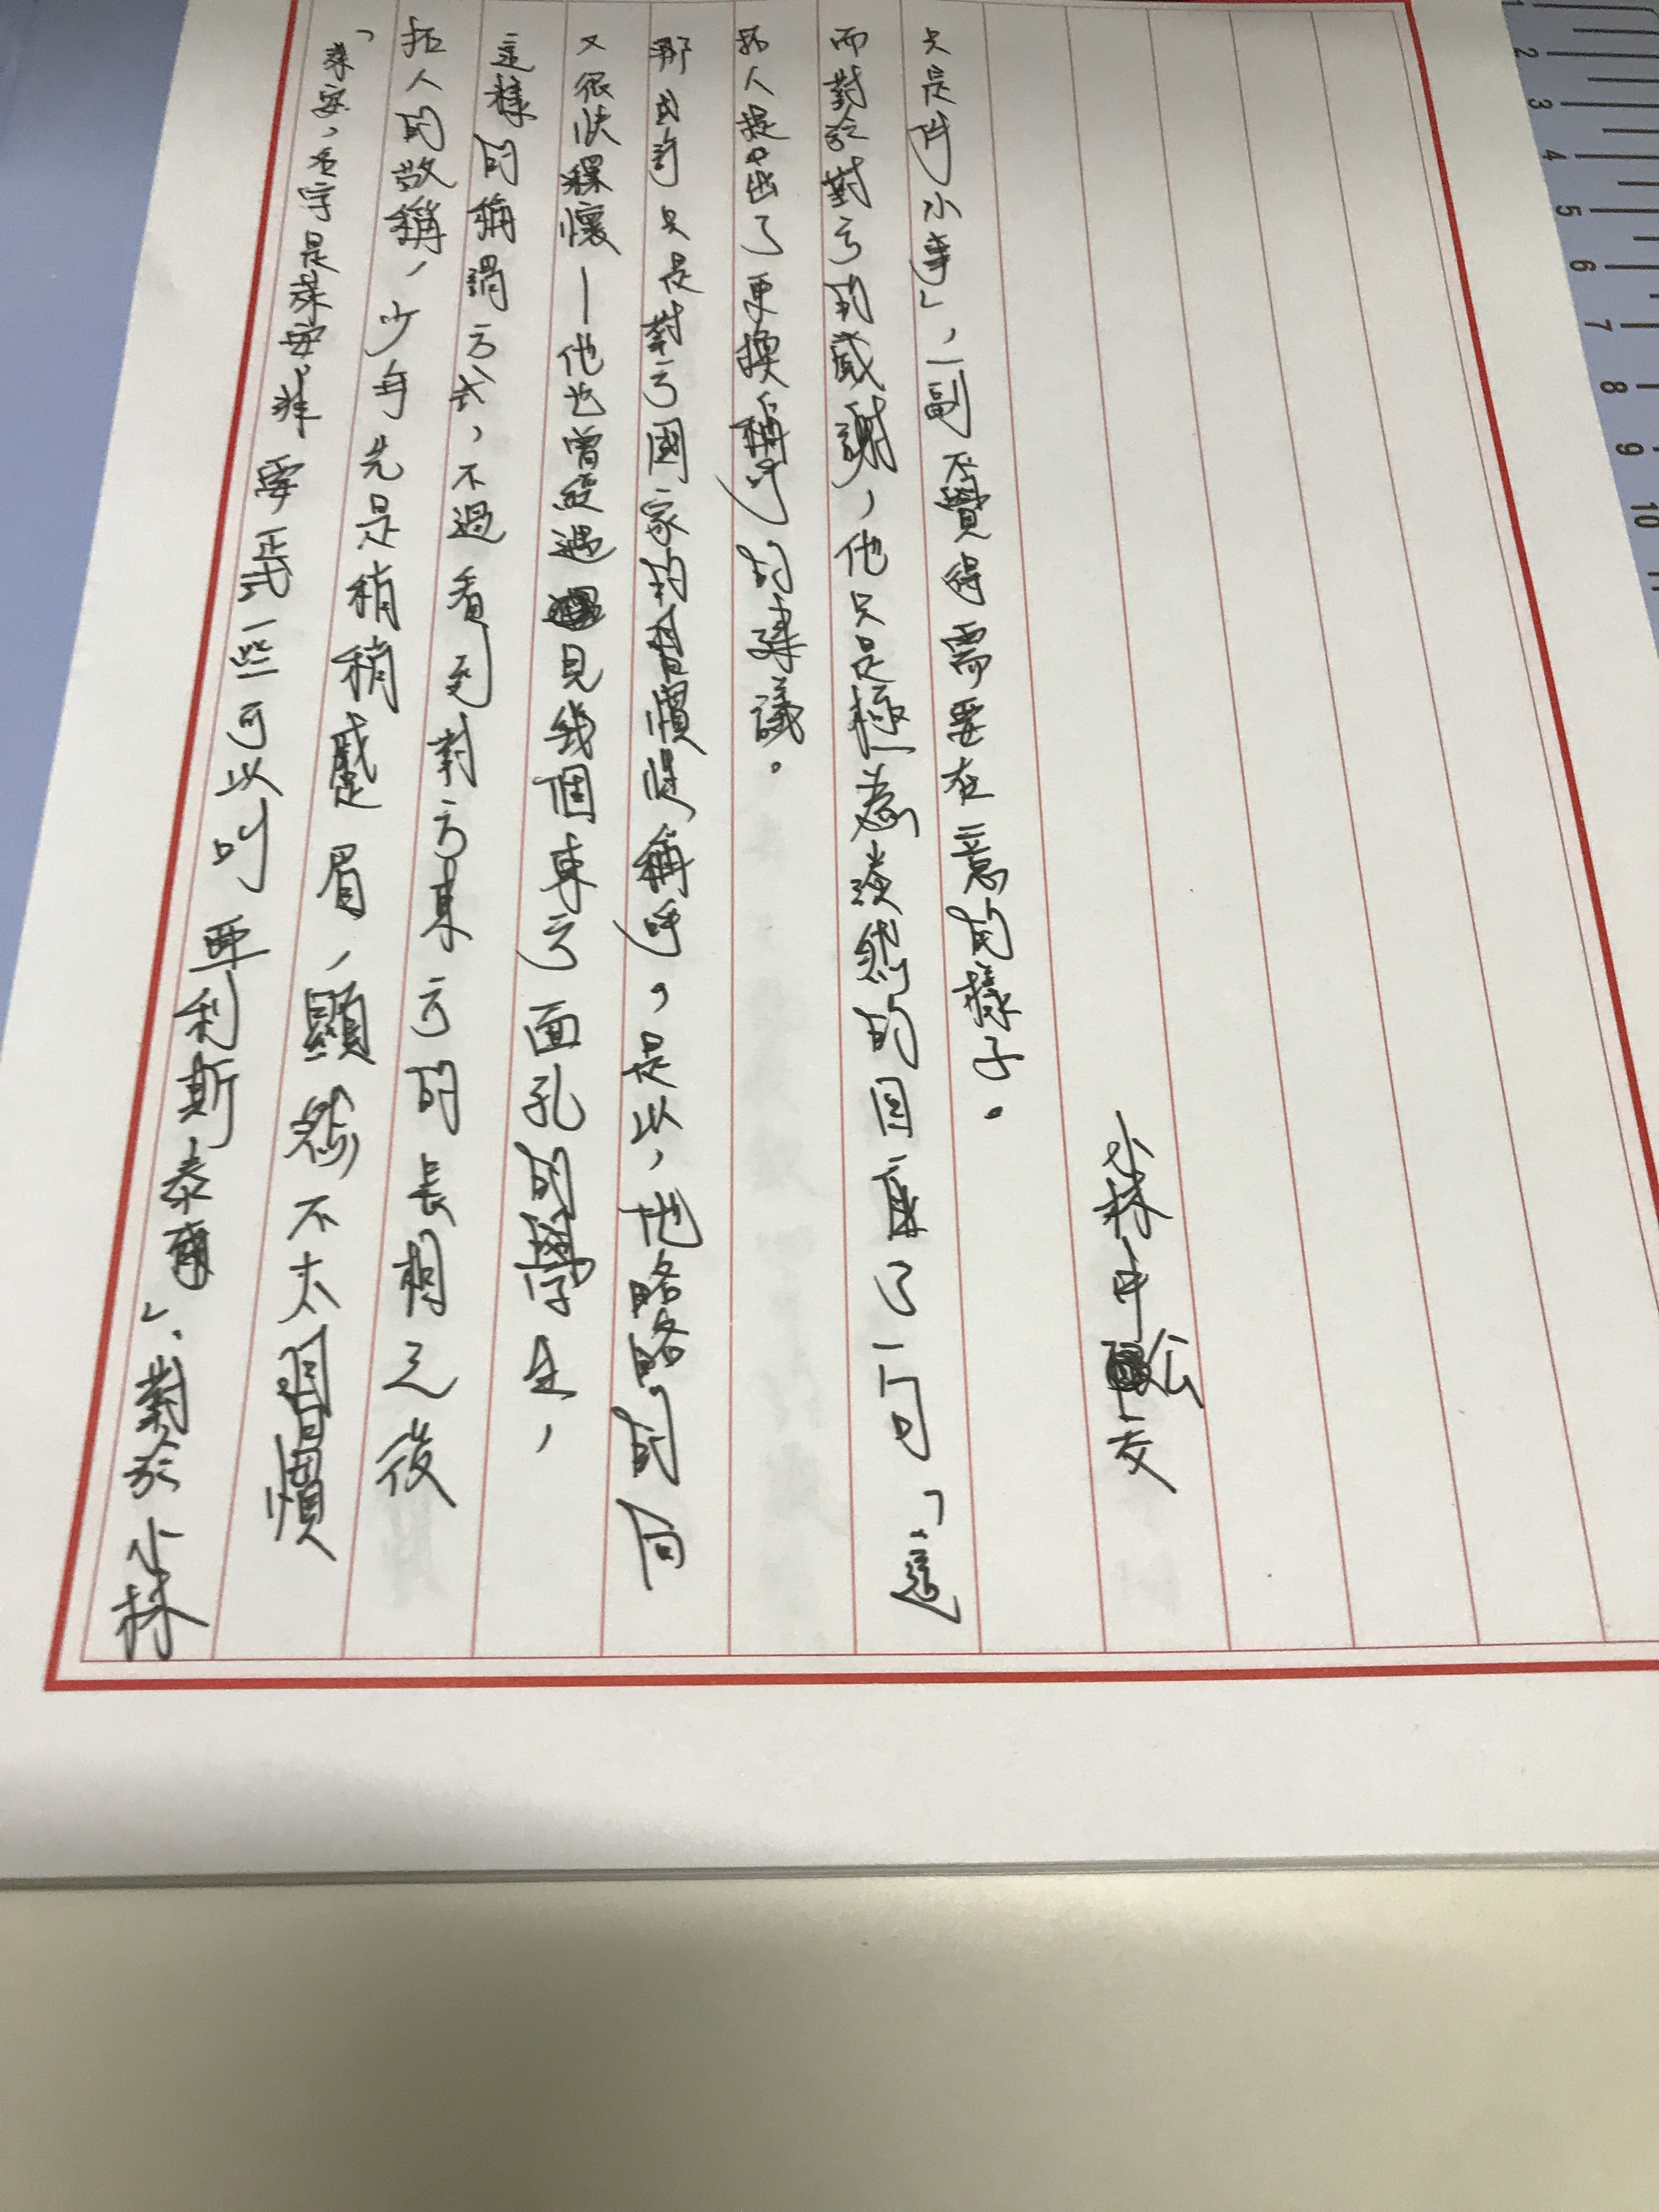 「萊安，名字是萊安。非要正式一些可以叫亞利斯泰爾」，對於小林
拓人的敬稱，少年先是稍稍蹙眉，顯然不太習慣
這樣的稱謂方式，不過看到對方東方的長相之後
又很快釋懷—他也曾經遇見幾個東方面孔的學生，
那或許只是對方國家的習慣性稱呼，是以，他略略的向
拓人提出了更換稱呼的建議。
而對於對方的感謝，他只是極為淡然的回應了一句「這
只是件小事」，一副不覺得需要在意的樣子。
2 3 4 5 6 7 8 9 10